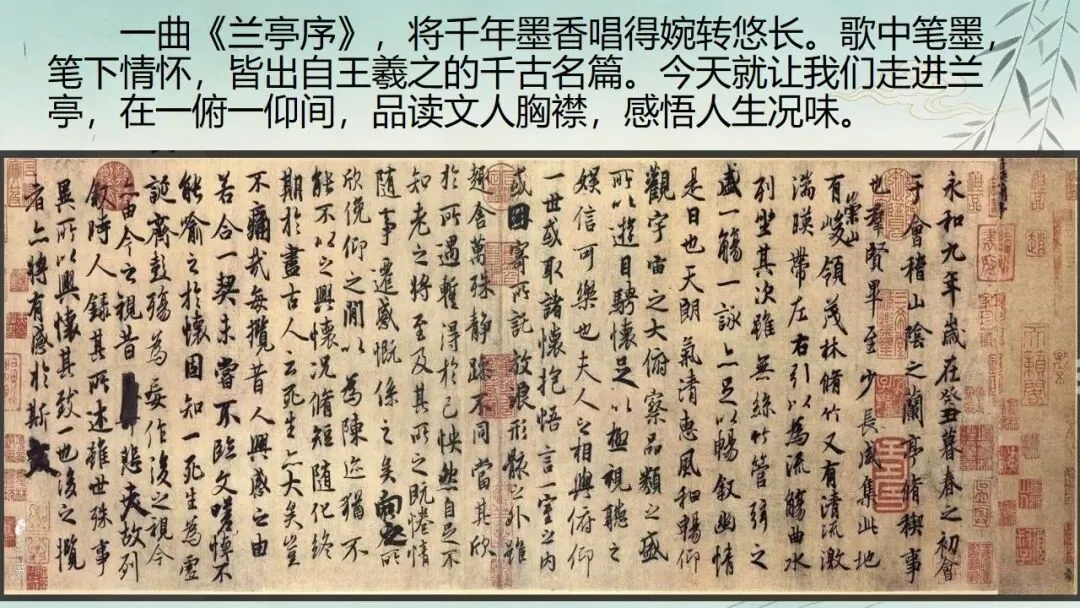 一曲《兰亭序》，将千年墨香唱得婉转悠长。歌中笔墨，
笔下情怀，皆出自王羲之的千古名篇。今天就让我们走进兰
亭，在一俯一仰间，品读文人胸襟，感悟人生况味。
永和九年歲在癸丑暮春之初會
于會稽山陰之蘭亭脩稧事
也羣賢畢至少長咸集此地
有崇山峻領茂林脩竹又有清流激
湍暎帶左右引以為流觴曲水
列坐其次雖無絲竹管弦之
盛一觴一詠亦足以暢叙幽情
是日也天朗氣清惠風和暢仰
觀宇宙之大俯察品類之盛
所以遊目騁懷足以極視聽之
娛信可樂也夫人之相與俯仰
一世或取諸懷抱悟言一室之內
或因寄所託放浪形骸之外雖
趣舍萬殊靜躁不同當其欣
於所遇暫得於己怏然自足不
知老之將至及其所之既惓情
隨事遷感慨係之矣向之所
欣俛仰之閒以為陳迹猶不
能不以之興懷況脩短隨化終
期於盡古人云死生亦大矣豈
不痛哉每攬昔人興感之由
若合一契未嘗不臨文嗟悼不
能喻之於懷固知一死生為虛
誕齊彭殤為妄作後之視今
亦由今之視昔悲夫故列
叙時人錄其所述雖世殊事
異所以興懷其致一也後之攬
者亦將有感於斯文